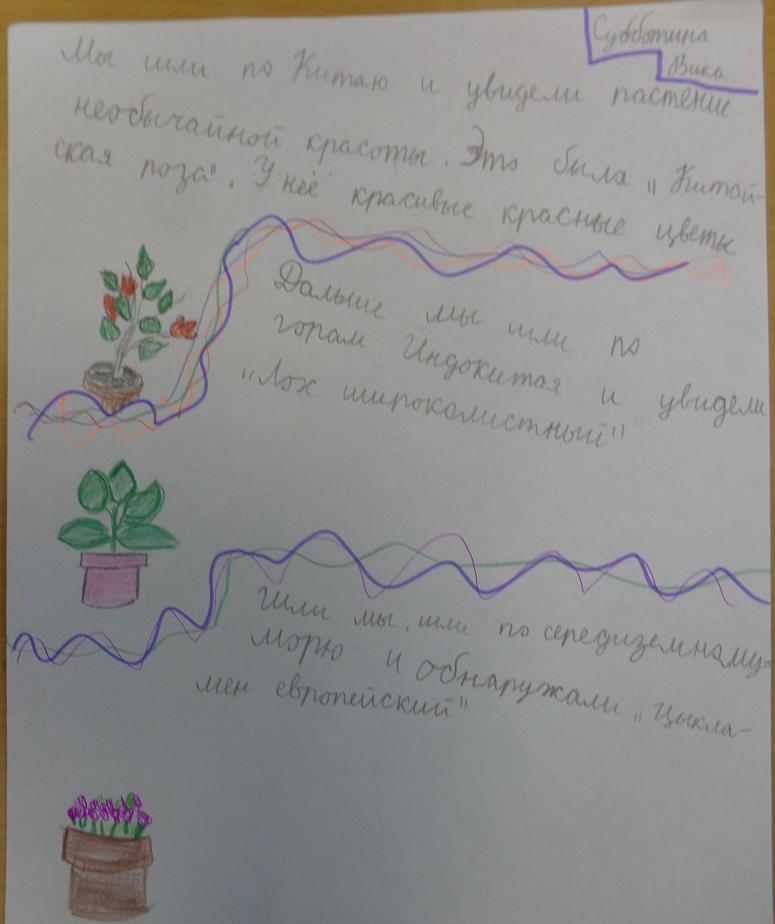 Субботина
Вика
Мы шли по Китаю и увидели пастение
необычайной красоты. Это была „Китай-
ская роза". У неё красивые красные цветы
Дальше мы шли по
горам Индокитая и увидели
„Лох широколистный"
Шли мы, шли по середиземнаму-
морю и обнаружали „Цыкла-
мен европейский"